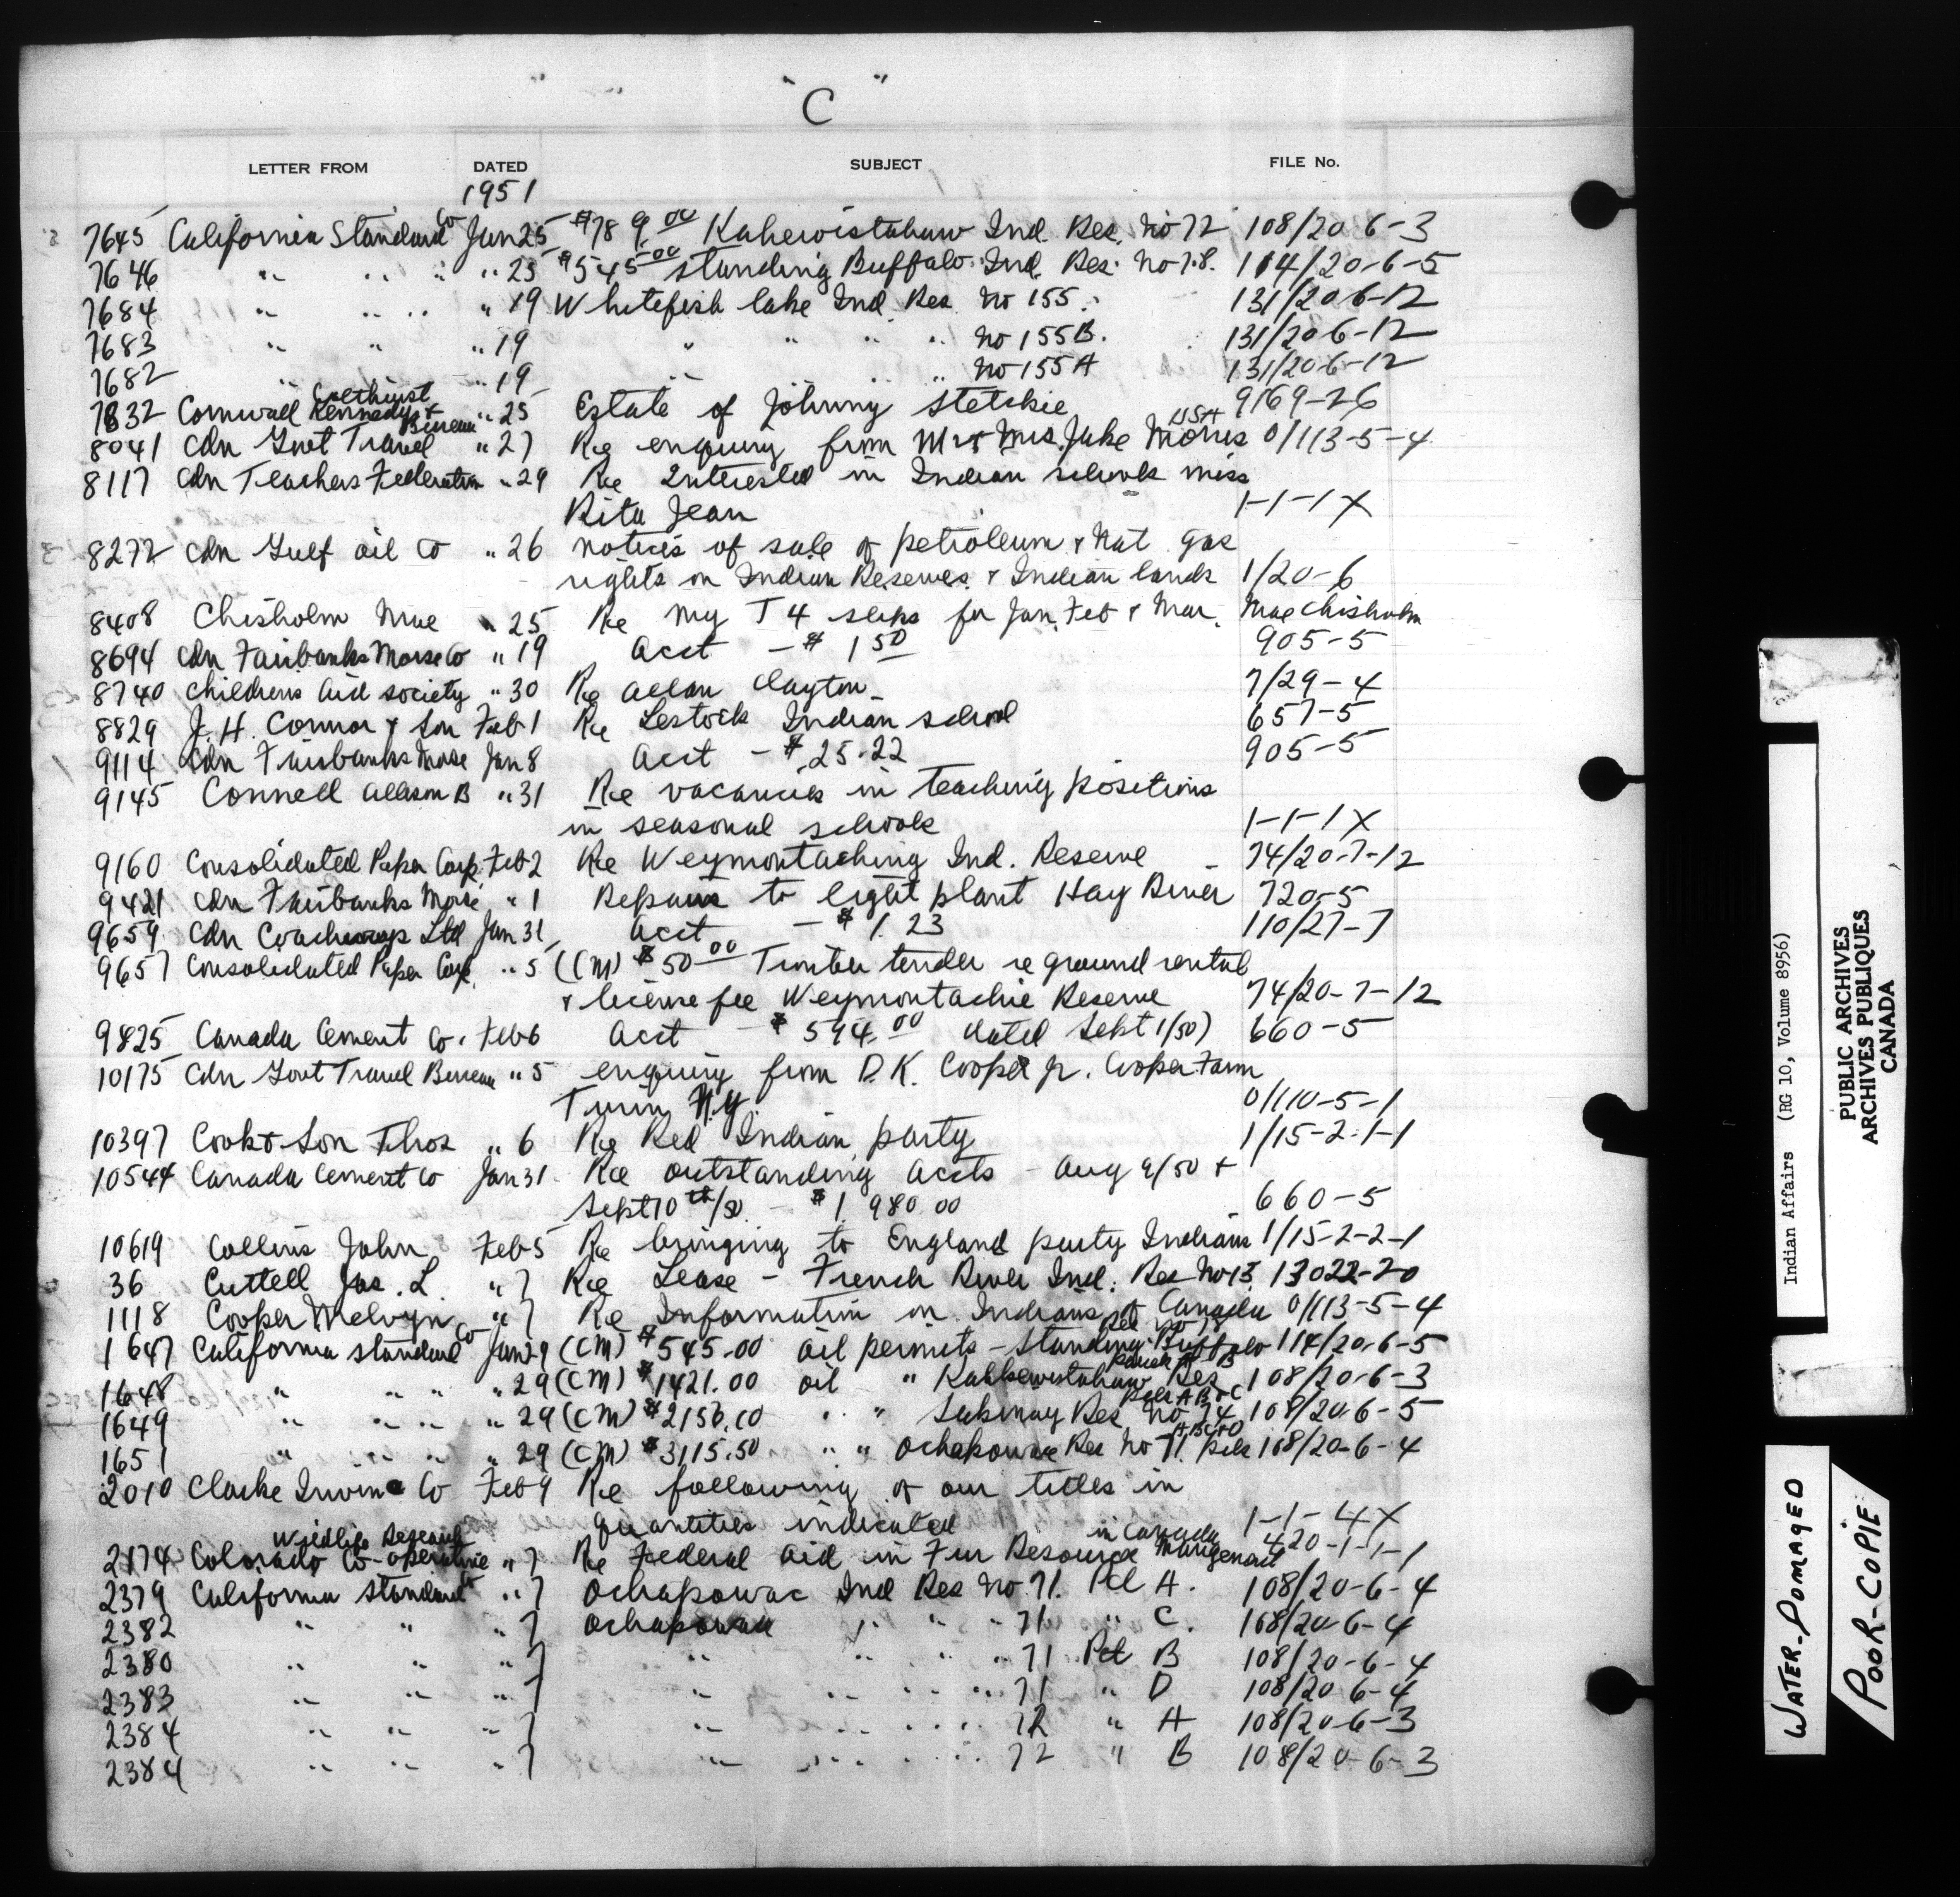 "C"
LETTER FROM DATED SUBJECT FILE No.
1951
7645 California Standard Co Jan 25 $789.00 Kahewistahaw Ind. Res. No 72 108/20-6-3
7646 " " " " " 25 $545.00 Standing Buffalo Ind. Res. No 78. 114/20-6-5
7684 " " " " 19 Whitefish lake Ind. Res No 155. 131/20-6-12
7683 " " " 19 " " " " No 155B. 131/20-6-12
7682 " " 19 " " " No 155A 131/20-6-12
7832 Cornwall Kennedy & " 25 Estate of Johnny Stetskie 9169-26
8041 Cdn Govt Travel Bureau " 27 Re enquiry from Mr & Mrs. Jake Morris USA 0/113-5-4
8117 Cdn Teachers Federation " 29 Re Interested in Indian schools miss
Rita Jean 1-1-1X
8272 Cdn Gulf Oil Co " 26 notices of sale of petroleum & Nat gas
rights on Indian Reserves & Indian lands 1/20-6
8408 Chisholm Mae " 25 Re my T4 slips for Jan, Feb & Mar. Mae Chisholm
8694 Cdn Fairbanks Morse Co " 19 Acct - $1.50 905-5
8740 Childrens Aid Society " 30 Re Allan Clayton 7/29-4
8829 J. H. Connor & Son Feb 1 Re Lestock Indian School 657-5
9114 Cdn Fairbanks Morse Jan 8 Acct - $25.22 905-5
9145 Connell Allison B " 31 Re vacancies in teaching positions
in seasonal schools 1-1-1X
9160 Consolidated Paper Corp. Feb 2 Re Weymontaching Ind. Reserve - 74/20-7-12
9421 Cdn Fairbanks Morse " 1 Repairs to light plant Hay River 720-5
9659 Cdn Ltd Jan 31 Acct - $1.23 110/27-7
9657 Consolidated Paper Corp. " 5 (CM) $50.00 Timber tender re ground rental
& license fee Weymontachie Reserve 74/20-7-12
9825 Canada Cement Co. Feb 6 Acct - $594.00 dated Sept 1/50) 660-5
10175 Cdn Govt Travel Bureau " 5 enquiry from D.K. Cooper Jr. Cooper Farm
Turin N.Y. 0/110-5-1
10397 Cook & Son Thos " 6 Re Red Indian party 1/15-2-1-1
10544 Canada Cement Co Jan 31 Re outstanding accts - Aug 9/50 &
Sept 10th/50 - $1,980.00 660-5
10619 Collins John Feb 5 Re bringing to England party Indians 1/15-2-2-1
36 Cuttell Jas. L. " 7 Re Lease - French River Ind. Res No 13. 13022-20
1118 Cooper Melvyn " 7 Re Information on Indians of Canada 0/113-5-4
1647 California Standard Co Jan 29 (CM) $545.00 oil permits - Standing Buffalo Res No 78 114/20-6-5
1648 " " " " 29 (CM) $1421.00 oil " Kahkewistahaw Res 108/20-6-3
1649 " " " " 29 (CM) $2156.10 " " Sakimay Res No 74 Pcls A B & C 108/20-6-5
1651 " " " " 29 (CM) $3115.50 " " Ochapowace Res No 71. Pcls A B C & D 108/20-6-4
2010 Clarke Irwin Co Feb 9 Re following of our titles in
quantities indicated 1-1-4X
2174 Colorado Co-operative Wildlife Research " 7 Re Federal Aid in Fur Resource Management in Canada 420-1-1-1
2379 California Standard Co " 7 Ochapowac Ind Res No 71. Pcl A. 108/20-6-4
2382 " " " 7 Ochapowac " " " 71 " C. 108/20-6-4
2380 " " " 7 " " " " 71 Pcl B 108/20-6-4
2383 " " " 7 " " " " 71 " D 108/20-6-4
2384 " " " 7 " " " " 72 " A 108/20-6-3
2384 " " " 7 " " " " 72 " B 108/20-6-3
Indian Affairs (RG 10, Volume 8956)
PUBLIC ARCHIVES
ARCHIVES PUBLIQUES
CANADA
WATER-DOMAGED
POOR-COPIE